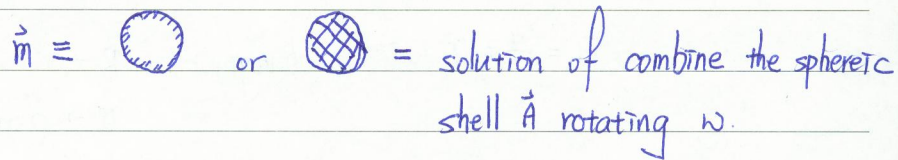 m⃗ ≡ or = solution of combine the sphereic
shell A⃗ rotating ω.